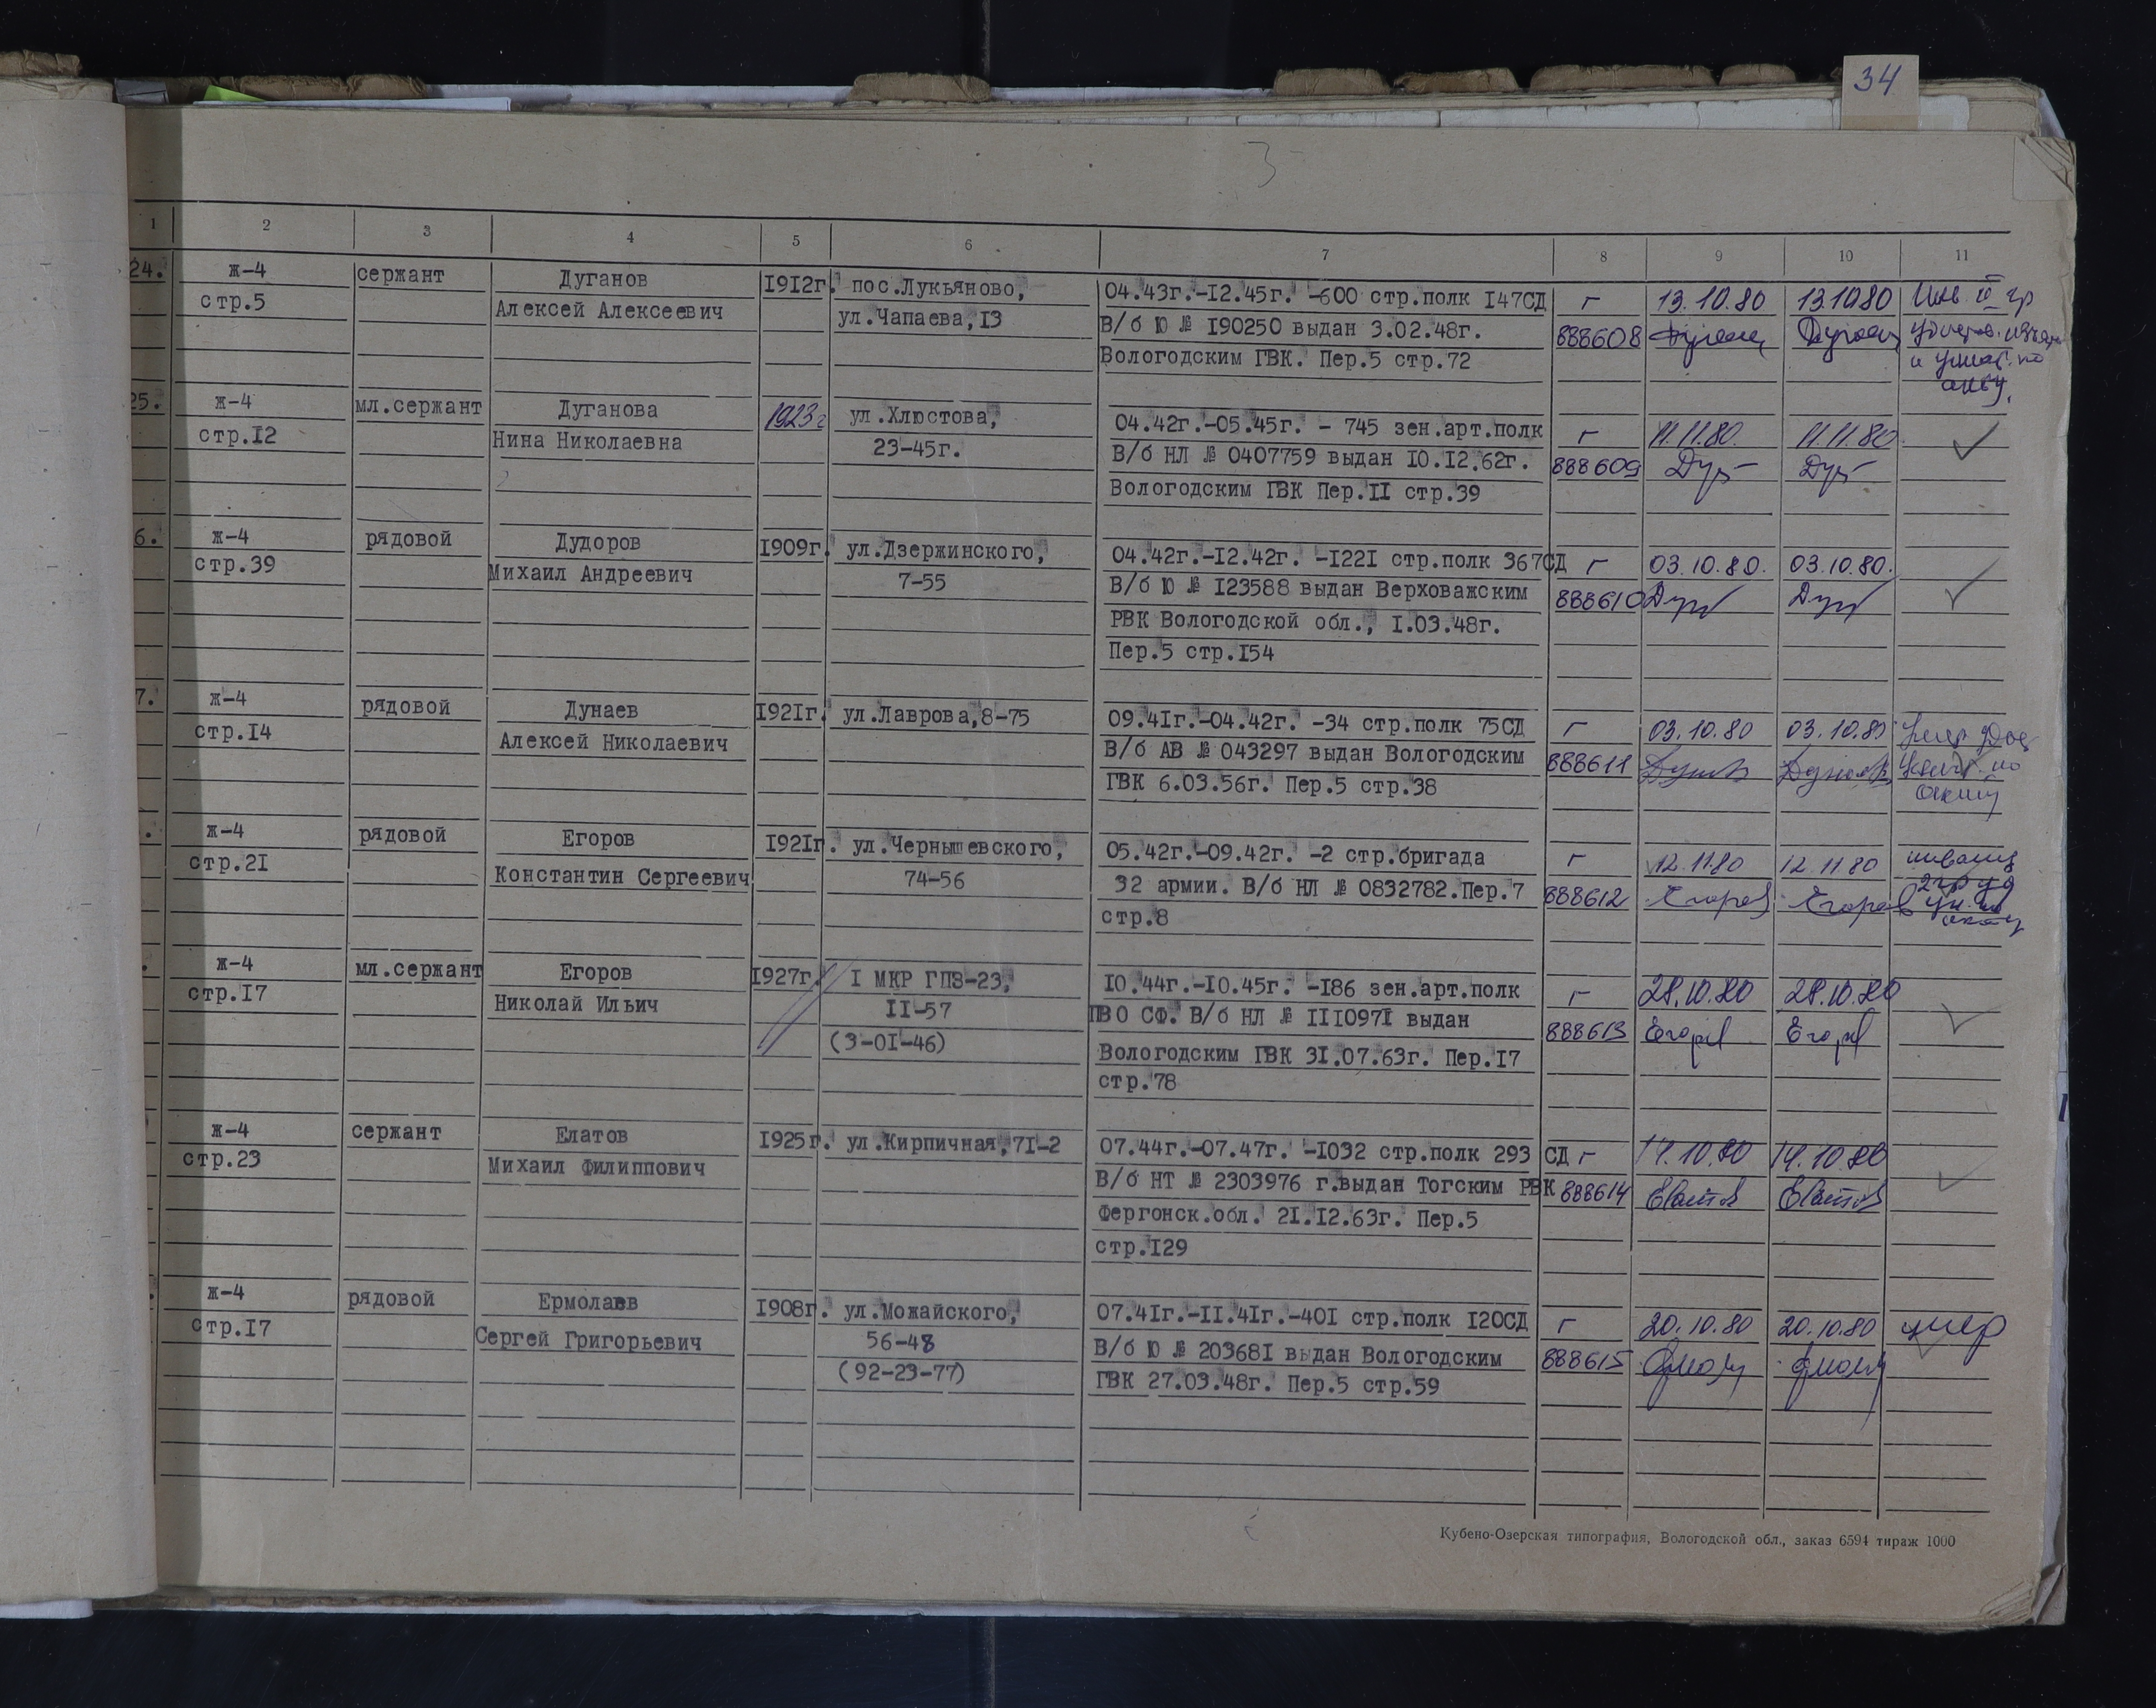 34
3
1 2 3 4 5 6 7 8 9 10 11
24. ж-4 сержант Дуганов 1912г. пос.Лукьяново, 04.43г.-12.45г. -600 стр.полк 147СД г 13.10.80 13.10.80 Инв. II гр
стр.5 Алексей Алексеевич ул.Чапаева,13 В/б Ю № 190250 выдан 3.02.48г. 888608
Вологодским ГВК. Пер.5 стр.72 и уничт. по
акту.
25. ж-4 мл.сержант Дуганова 1923г ул.Хлюстова, 04.42г.-05.45г. - 745 зен.арт.полк г 11.11.80. 11.11.80.
стр.12 Нина Николаевна 23-45г. В/б НЛ № 0407759 выдан 10.12.62г. 888609
Вологодским ГВК Пер.11 стр.39
6. ж-4 рядовой Дудоров 1909г. ул.Дзержинского, 04.42г.-12.42г. -1221 стр.полк 367СД г 03.10.80. 03.10.80.
стр.39 Михаил Андреевич 7-55 В/б Ю № 123588 выдан Верховажским 888610
РВК Вологодской обл., 1.03.48г.
Пер.5 стр.154
7. ж-4 рядовой Дунаев 1921г. ул.Лаврова,8-75 09.41г.-04.42г. -34 стр.полк 75СД г 03.10.80 03.10.80
стр.14 Алексей Николаевич В/б АВ № 043297 выдан Вологодским 888611
ГВК 6.03.56г. Пер.5 стр.38
. ж-4 рядовой Егоров 1921г. ул.Чернышевского, 05.42г.-09.42г. -2 стр.бригада г 12.11.80 12.11.80
стр.21 Константин Сергеевич 74-56 32 армии. В/б НЛ № 0832782.Пер.7 888612 Егоров Егоров
стр.8
. ж-4 мл.сержант Егоров 1927г. 1 МКР ГПЗ-23, 10.44г.-10.45г. -186 зен.арт.полк г 28.10.80 28.10.80
стр.17 Николай Ильич 11-57 ПВО СФ. В/б НЛ № 1110971 выдан 888613 Егоров Егоров
(3-01-46) Вологодским ГВК 31.07.63г. Пер.17
стр.78
ж-4 сержант Елатов 1925г. ул.Кирпичная,71-2 07.44г.-07.47г. -1032 стр.полк 293 СД г 14.10.80 14.10.80
стр.23 Михаил Филиппович В/б НТ № 2303976 г.выдан Тогским РВК 888614 Елатов Елатов
Фергонск.обл. 21.12.63г. Пер.5
стр.129
. ж-4 рядовой Ермолаев 1908г. ул.Можайского, 07.41г.-11.41г.-401 стр.полк 120СД г 20.10.80 20.10.80 умер
стр.17 Сергей Григорьевич 56-48 В/б Ю № 203681 выдан Вологодским 888615
(92-23-77) ГВК 27.03.48г. Пер.5 стр.59
Кубено-Озерская типография, Вологодской обл., заказ 6594 тираж 1000